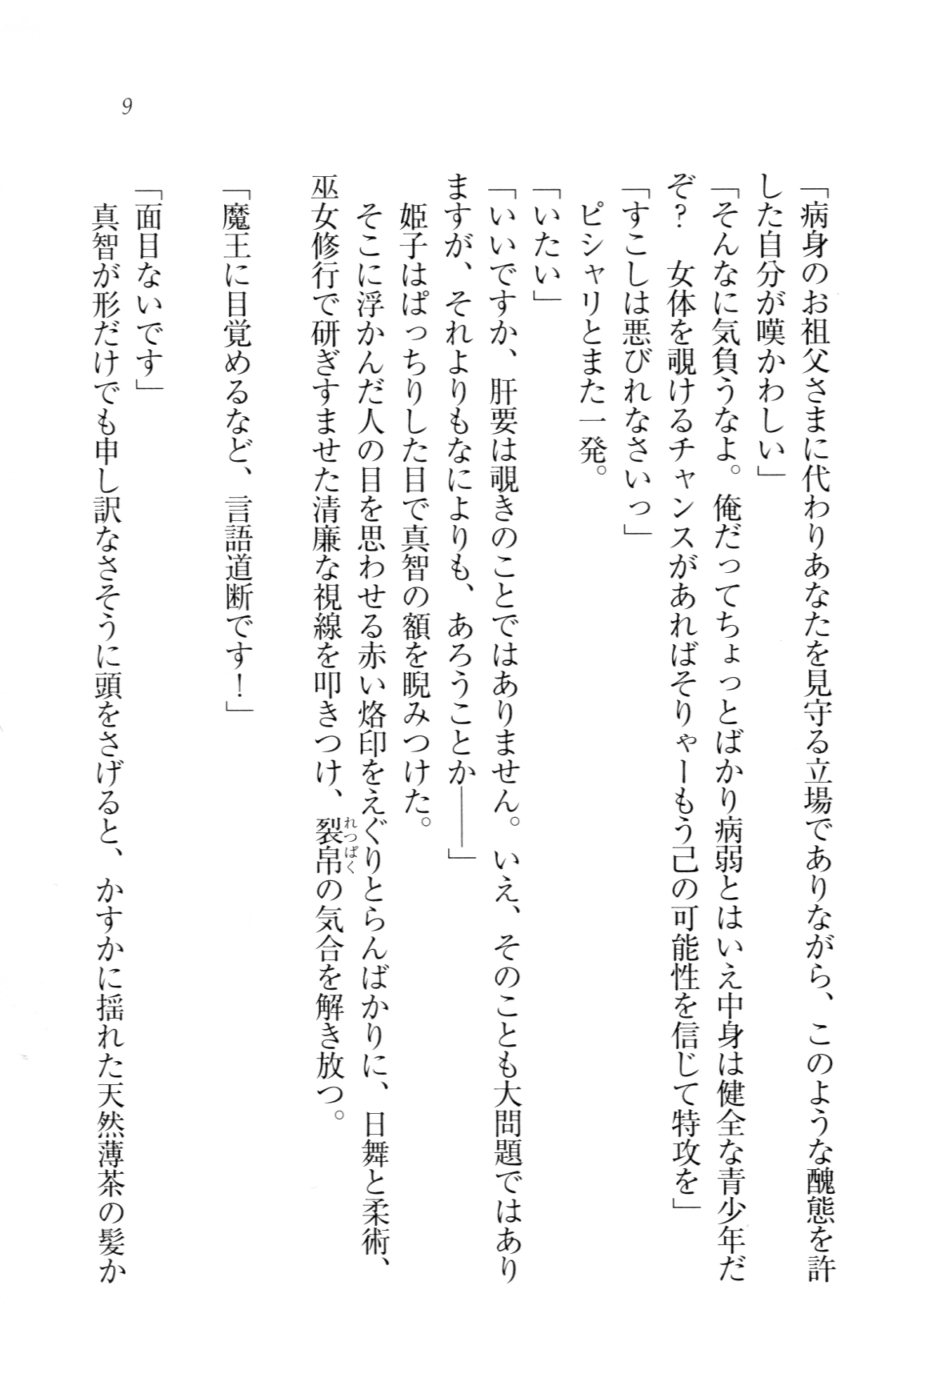 9
「病身のお祖父さまに代わりあなたを見守る立場でありながら、このような醜態を許
した自分が嘆かわしい」
「そんなに気負うなよ。俺だってちょっとばかり病弱とはいえ中身は健全な青少年だ
ぞ?　女体を覗けるチャンスがあればそりゃーもう己の可能性を信じて特攻を」
「すこしは悪びれなさいっ」
　ピシャリとまた一発。
「いたい」
「いいですか、肝要は覗きのことではありません。いえ、そのことも大問題ではあり
ますが、それよりもなによりも、あろうことか――」
　姫子はぱっちりした目で真智の額を睨みつけた。
　そこに浮かんだ人の目を思わせる赤い烙印をえぐりとらんばかりに、日舞と柔術、
巫女修行で研ぎすませた清廉な視線を叩きつけ、裂帛の気合を解き放つ。
れっぱく
「魔王に目覚めるなど、言語道断です!」
「面目ないです」
　真智が形だけでも申し訳なさそうに頭をさげると、かすかに揺れた天然薄茶の髪か